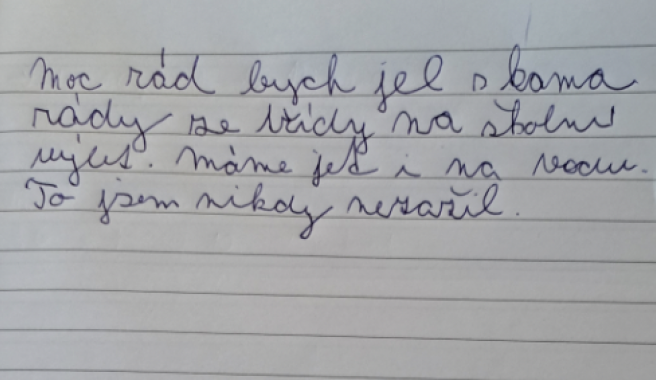 Moc rád bych jel s kama
rády ze třídy na školní
výlet. Máme jet i na vodu.
To jsem nikdy nezažil.